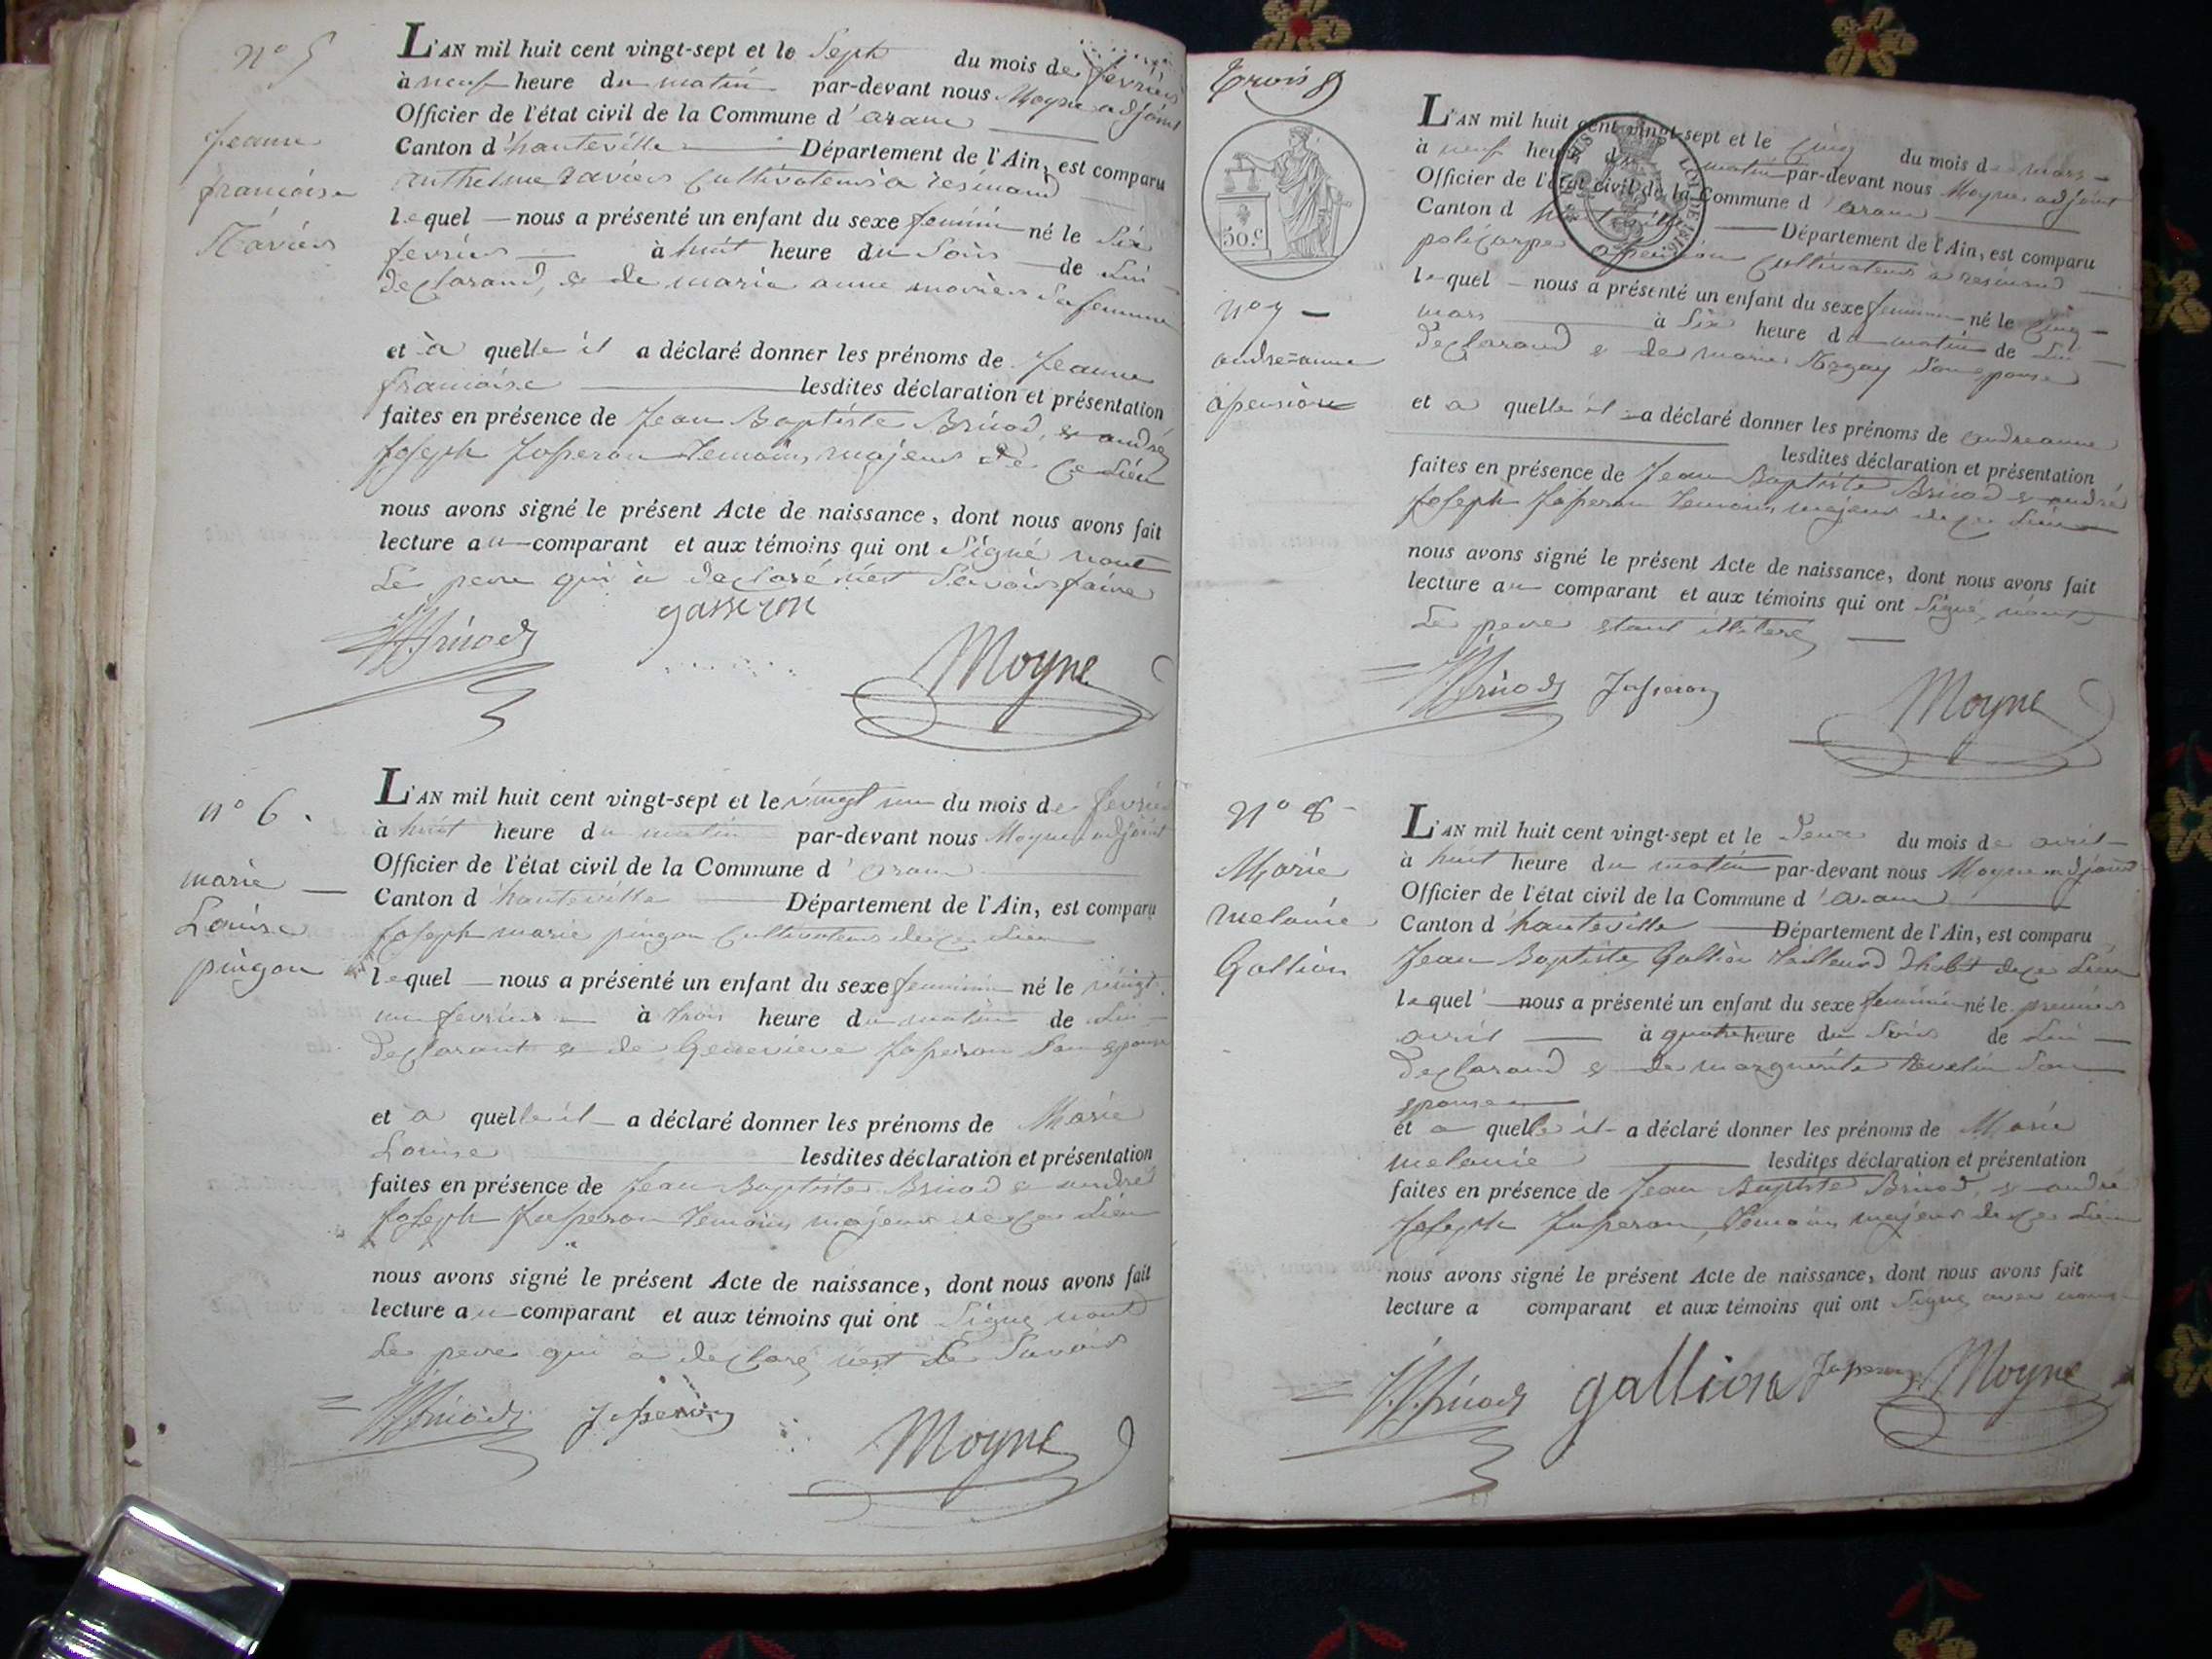 n° 5
Jeanne
francoise
Raviers
L'AN mil huit cent vingt-sept et le Sept du mois de fevrier
à neuf heure du matin par-devant nous Moyne adjoint
Officier de l'état civil de la Commune d'aranc
Canton d'hauteville Département de l'Ain, est comparu
anthelme Raviers Cultivateur à resinand
lequel nous a présenté un enfant du sexe feminin né le Six
fevrier à huit heure du Soir de Lui
declarand, & de marie anne Sa femme
et à quelle il a déclaré donner les prénoms de Jeanne
francoise lesdites déclaration et présentation
faites en présence de Jean Baptiste Bruod, & andré
Joseph Jasperon temoins majeurs de ce Lieu
nous avons signé le présent Acte de naissance, dont nous avons fait
lecture au comparant et aux témoins qui ont Signé nont
Le pere qui à declaré nest Savoir faire
JB Bruod gasseron Moyne
n° 6.
marie
Louise
pingon
L'AN mil huit cent vingt-sept et le vingt un du mois de fevrier
à huit heure du matin par-devant nous Moyne adjoint
Officier de l'état civil de la Commune d'aranc
Canton d'hauteville Département de l'Ain, est comparu
Joseph marie pingon Cultivateur de ce Lieu
lequel nous a présenté un enfant du sexe feminin né le vingt
un fevrier à trois heure du matin de Lui
declarant & de Genevieve Jasperon Son epouse
et a quelle il a déclaré donner les prénoms de Marie
Louise lesdites déclaration et présentation
faites en présence de Jean Baptiste Bruod & andré
Joseph Jasperon temoins majeurs de ce Lieu
nous avons signé le présent Acte de naissance, dont nous avons fait
lecture au comparant et aux témoins qui ont Signé nont
Le pere qui à declaré nest Le Savoir
JB Bruod Jasperon Moyne
trois
50.c
LOI DE 1816
n° 7
andre-anne
apension
L'AN mil huit cent vingt-sept et le Cinq du mois de mars
à neuf heure du matin par-devant nous Moyne adjoint
Officier de l'état civil de la Commune d'aranc
Canton d'hauteville Département de l'Ain, est comparu
policarpe apension Cultivateur à resinand
lequel nous a présenté un enfant du sexe feminin né le Cinq
mars à Six heure du matin de Lui
declarand & de marie Son epouse
et a quelle il a déclaré donner les prénoms de andreanne
lesdites déclaration et présentation
faites en présence de Jean Baptiste Bruod & andré
Joseph Jasperon temoins majeurs de ce Lieu
nous avons signé le présent Acte de naissance, dont nous avons fait
lecture au comparant et aux témoins qui ont Signé nont
Le pere etant illiteré
JB Bruod Jasperon Moyne
N° 8
Marie
melanie
Gallion
L'AN mil huit cent vingt-sept et le deux du mois de avril
à huit heure du matin par-devant nous Moyne adjoint
Officier de l'état civil de la Commune d'aranc
Canton d'hauteville Département de l'Ain, est comparu
Jean Baptiste Gallion tailleur d'habit de ce Lieu
lequel nous a présenté un enfant du sexe feminin né le premier
avril à quatre heure du Soir de Lui
declarand & de marguerite Son
epouse
et a quelle il a déclaré donner les prénoms de Marie
melanie lesdites déclaration et présentation
faites en présence de Jean Baptiste Bruod, & andré
Joseph Jasperon, temoins majeurs de ce Lieu
nous avons signé le présent Acte de naissance, dont nous avons fait
lecture a comparant et aux témoins qui ont Signé avec nous
JB Bruod gallion Jasperon Moyne